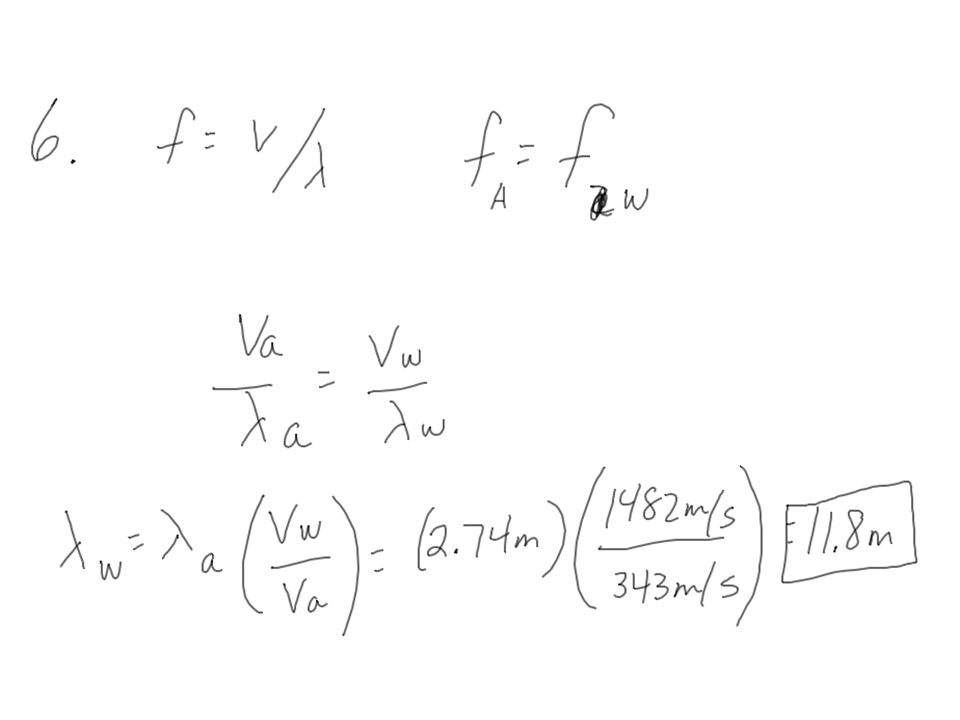 6. f = v/λ f_A = f_w
V_a / λ_a = V_w / λ_w
λ_w = λ_a (V_w / V_a) = (2.74m) (1482m/s / 343m/s) = 11.8m